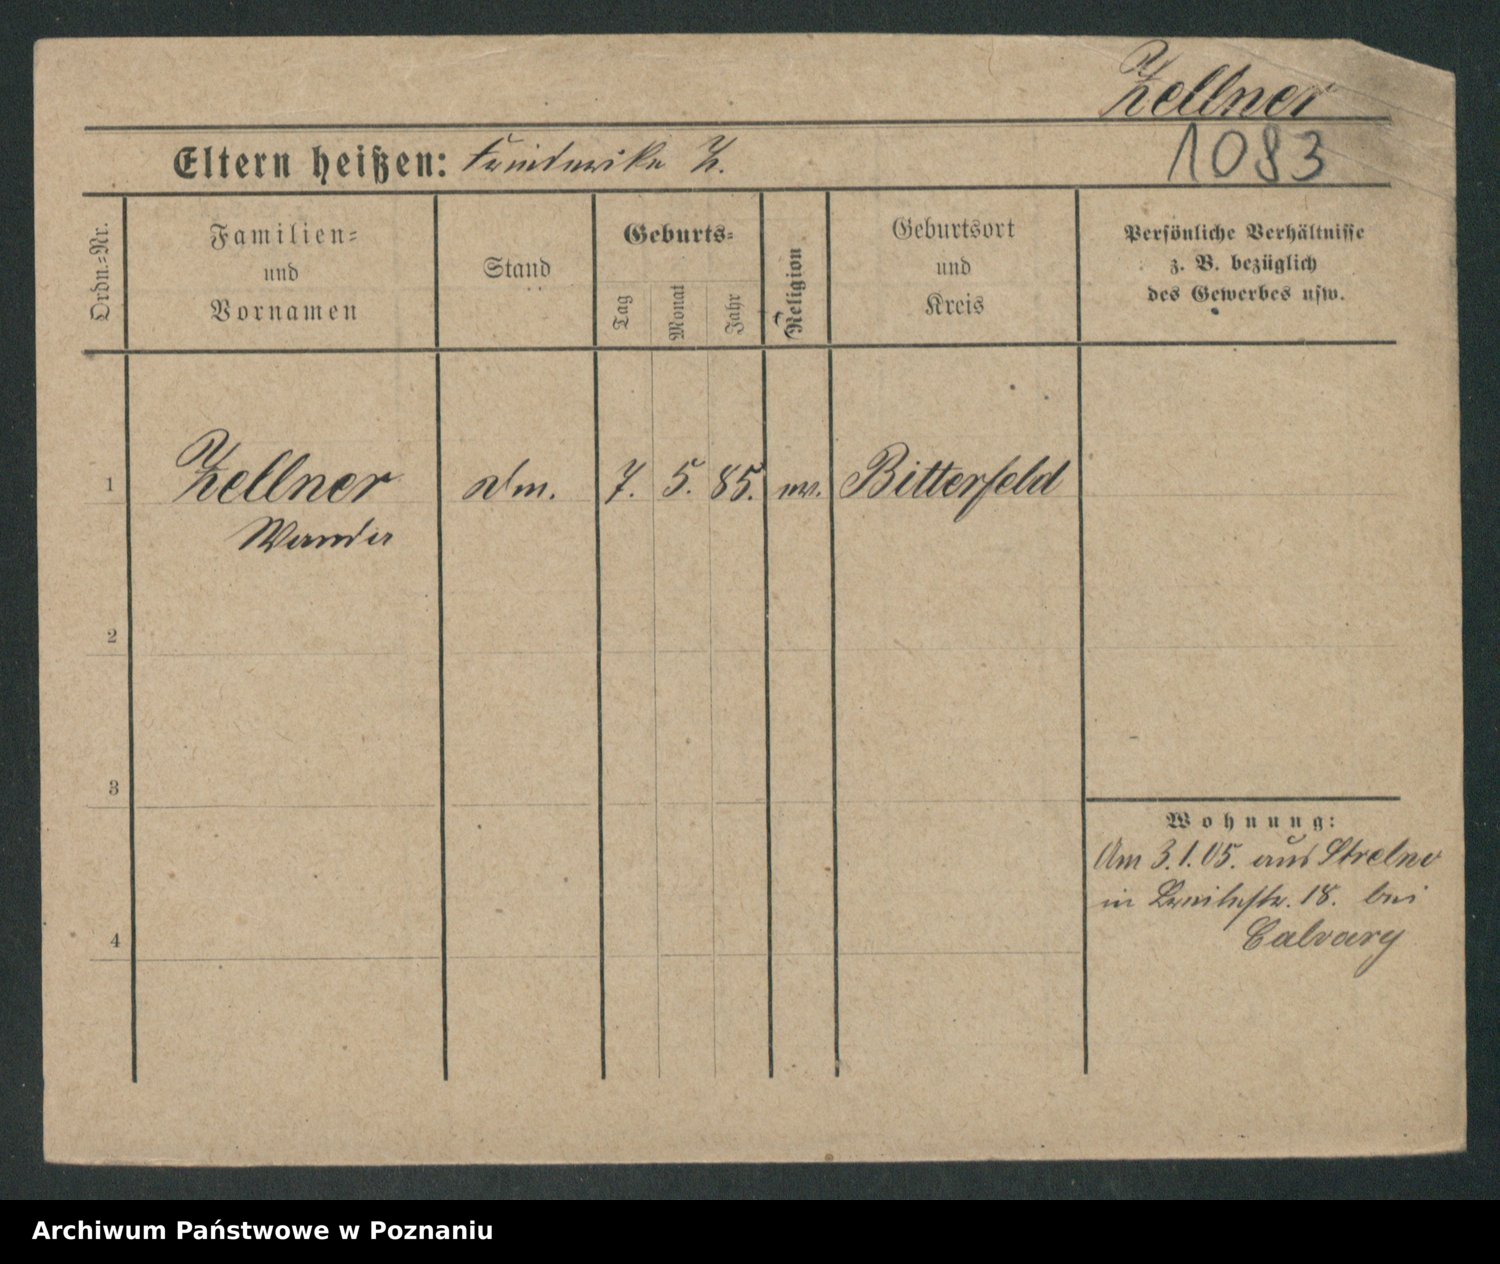 Zellner
1083
Eltern heißen: Friederike Z.
Ordn.-Nr.
Familien-
und
Vornamen
Stand
Geburts-
Tag
Monat
Jahr
Religion
Geburtsort
und
Kreis
Persönliche Verhältnisse
z. B. bezüglich
des Gewerbes usw.
1 Zellner 7. 5. 85. ev. Bitterfeld
Wanda
2
3
4
Wohnung:
Am 3.1.05. aus Strelno
in Breitestr. 18. bei
Calvary
Archiwum Państwowe w Poznaniu